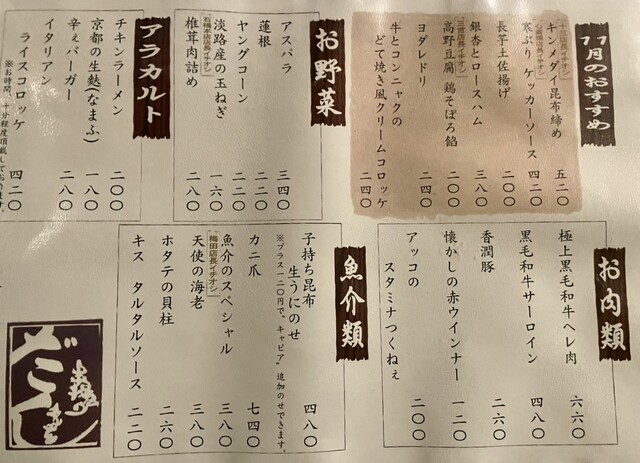 11月のおすすめ
キンメダイ昆布締め 五二〇
寒ぶり ケッカーソース 四二〇
長芋土佐揚げ 二〇〇
銀杏とロースハム 三八〇
三宮店店長イチオシ
高野豆腐 鶏そぼろ餡 二〇〇
ヨダレドリ 二四〇
牛とコンニャクの
どて焼き風クリームコロッケ 二四〇
お野菜
アスパラ 三四〇
蓮根 二二〇
ヤングコーン 二二〇
淡路産の玉ねぎ 一六〇
石橋本店店長イチオシ
椎茸肉詰め 二八〇
アラカルト
チキンラーメン 二〇〇
京都の生麩(なまふ) 一八〇
辛ぇバーガー 二八〇
イタリアン
ライスコロッケ 四二〇
※お時間、十分程度頂戴しております。
お肉類
極上黒毛和牛ヘレ肉 六六〇
黒毛和牛サーロイン 四八〇
香潤豚 二六〇
懐かしの赤ウインナー 一二〇
アッコの
スタミナつくねぇ 二〇〇
魚介類
子持ち昆布
生うにのせ 四八〇
※プラス一二〇円で。キャビア〟追加のせできます。
カニ爪 七四〇
魚介のスペシャル 三八〇
梅田店長イチオシ
天使の海老 三八〇
ホタテの貝柱 二六〇
キス タルタルソース 二二〇